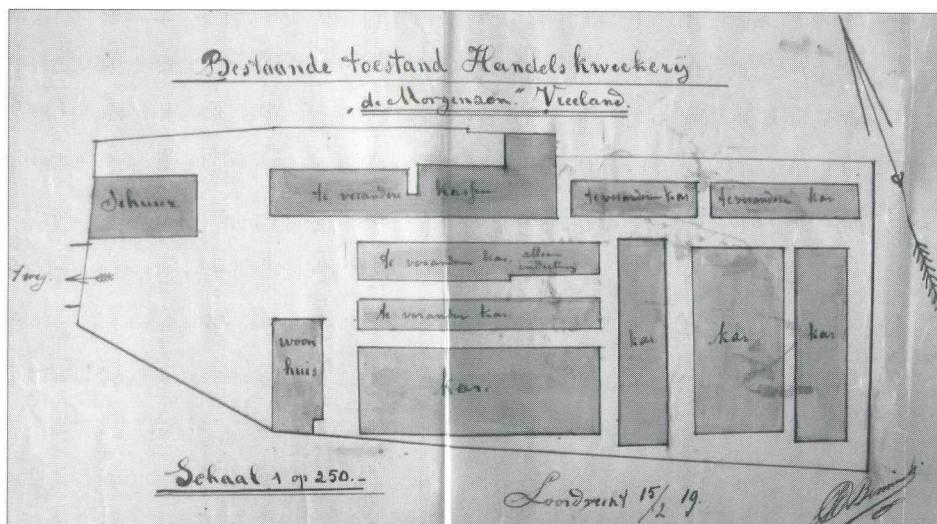 Bestaande toestand Handelskweekerij
"de Morgenzon." Vreeland.
Schuur
te veranderen kassen
te veranderen kas
te veranderen kas
te veranderen kas. alleen
indeeling
1 weg.
te veranderen kas.
woon
huis
kas.
kas
kas
kas
Schaal 1 op 250.-
Loosdrecht 15/2 19.